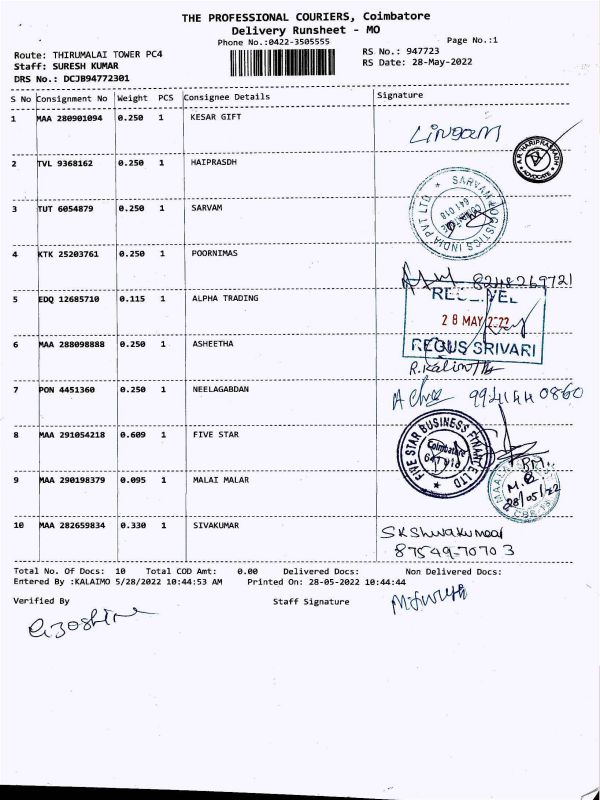 THE PROFESSIONAL COURIERS, Coimbatore
Delivery Runsheet - MO
Phone No.:0422-3505555 Page No.:1
Route: THIRUMALAI TOWER PC4 RS No.: 947723
Staff: SURESH KUMAR RS Date: 28-May-2022
DRS No.: DCJB94772301
S No Consignment No Weight PCS Consignee Details Signature
1 MAA 280901094 0.250 1 KESAR GIFT
Lingam
A.R. HARIPRASADH ADVOCATE
2 TVL 9368162 0.250 1 HAIPRASDH
SARVAM LOGISTICS INDIA PVT LTD
COIMBATORE
641 018
3 TUT 6054879 0.250 1 SARVAM
4 KTK 25203761 0.250 1 POORNIMAS
8248269721
5 EDQ 12685710 0.115 1 ALPHA TRADING
RECEIVED
28 MAY 2022
REGUS SRIVARI
6 MAA 288098888 0.250 1 ASHEETHA
7 PON 4451360 0.250 1 NEELAGABDAN
9941440860
8 MAA 291054218 0.609 1 FIVE STAR
FIVE STAR BUSINESS FINANCE LTD
Coimbatore
641 018
9 MAA 290198379 0.095 1 MALAI MALAR
28/05/22
10 MAA 282659834 0.330 1 SIVAKUMAR
SKShivakumaar
87549-70703
Total No. Of Docs: 10 Total COD Amt: 0.00 Delivered Docs: Non Delivered Docs:
Entered By :KALAIMO 5/28/2022 10:44:53 AM Printed On: 28-05-2022 10:44:44
Verified By Staff Signature